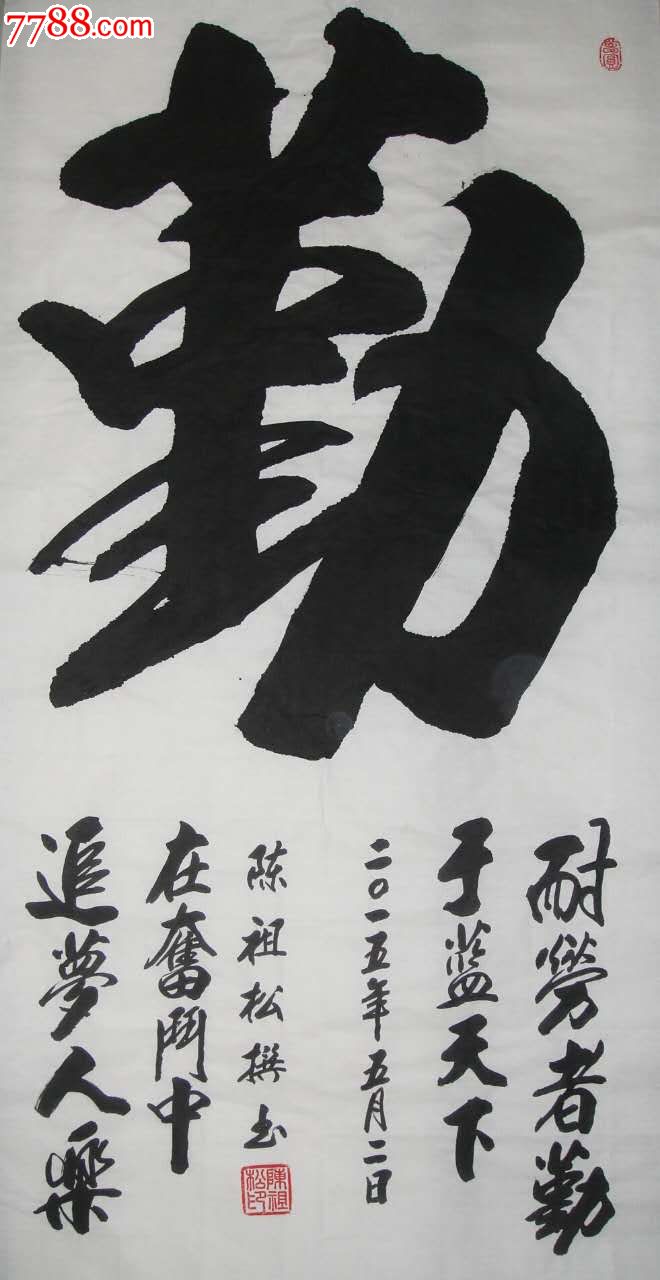 7788.com
勤
耐勞者勤
于蓝天下
二〇一五年五月二日
陈祖松撰书
在奮鬥中
追夢人樂
陳祖松印